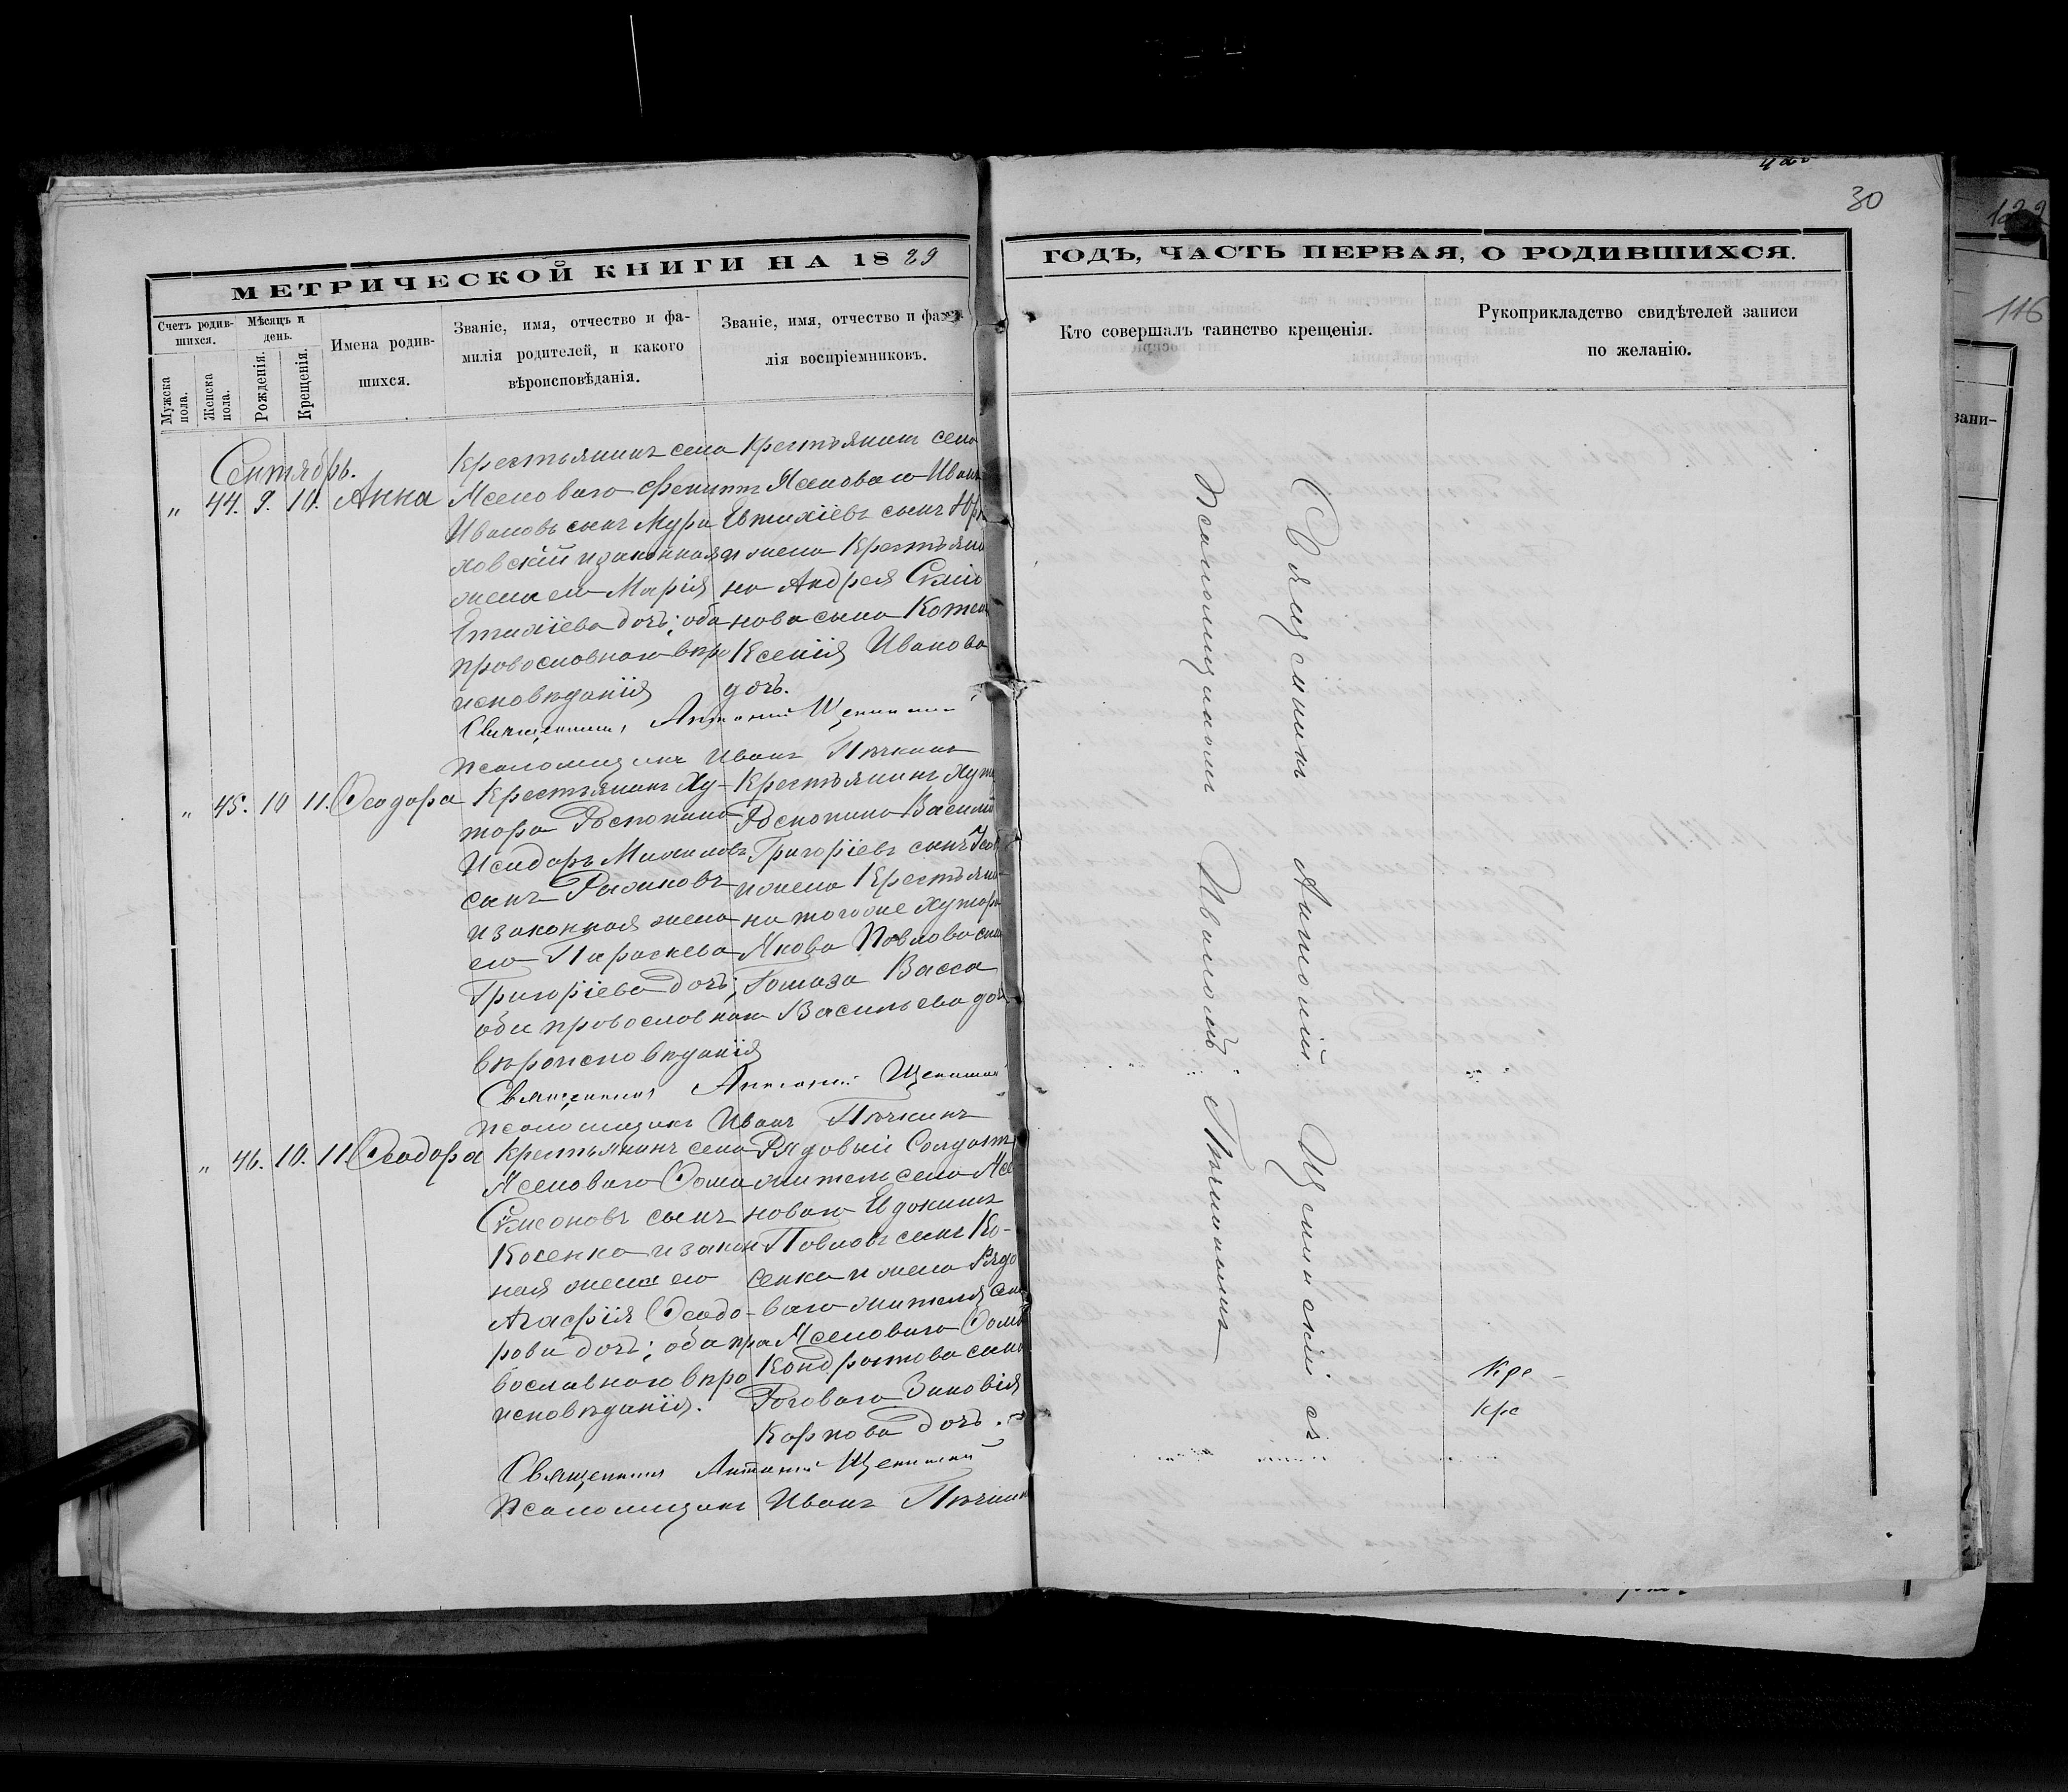 30
122
116
МЕТРИЧЕСКОЙ КНИГИ НА 1889
ГОДЪ, ЧАСТЬ ПЕРВАЯ, О РОДИВШИХСЯ.
Счетъ родив-
шихся.
Мѣсяцъ и
день.
Мужска
пола.
Женска
пола.
Рожденія.
Крещенія.
Имена родив-
шихся.
Званіе, имя, отчество и фа-
милія родителей, и какого
вѣроисповѣданія.
Званіе, имя, отчество и фами-
лія воспріемниковъ.
Кто совершалъ таинство крещенія.
Рукоприкладство свидѣтелей записи
по желанію.
зани-
Сентябрь.
„ 44. 9. 10. Анна
Крестьянинъ села
Ивановъ сынъ
ховскій и законная
жена его Марія
Евтихіева дочь; оба
православнаго вѣро
исповѣданія
Крестьянинъ села
Евтихіевъ сынъ
и жена Крестьяни
на Андрея
нова сына
Ксенія Иванова
дочь.
Священникъ Антоній Щепинскій
Псаломщикъ Иванъ Пѣчкинъ
„ 45. 10 11. Ѳеодора
Крестьянинъ Ху-
тора
Исидоръ Михаиловъ
сынъ
и законная жена
его Параскева
Григоріева дочь;
оба православнаго
вѣроисповѣданія
Крестьянинъ Хуто
Василій
Григоріевъ сынъ
и жена Крестьяни-
на того же Хутора
Якова Павлова сына
Васса
Васильева доч
Священникъ Антоній Щепинскій
Псаломщикъ Иванъ Пѣчкинъ
„ 46. 10. 11. Ѳеодора
Крестьянинъ села
Ясеноваго Ѳома
Симеоновъ сынъ
Косенко и закон
ная жена его
Агафія Ѳеодо-
рова дочь; оба пра
вославнаго вѣро
исповѣданія.
Рядовый Солдатъ
житель села Ясе
новаго Евдокимъ
Павловъ сынъ Ко-
сенко и жена Рядо
ваго жителя села
Ясеноваго Ѳомы
Кондратова сына
Роговаго Зиновія
Карпова дочь.
Священникъ Антоній Щепинскій
Псаломщикъ Иванъ Пѣчкинъ
Священникъ Антоній Щепинскій съ
Псаломщикомъ Иваномъ Пѣчкинымъ
Кре -
Кре